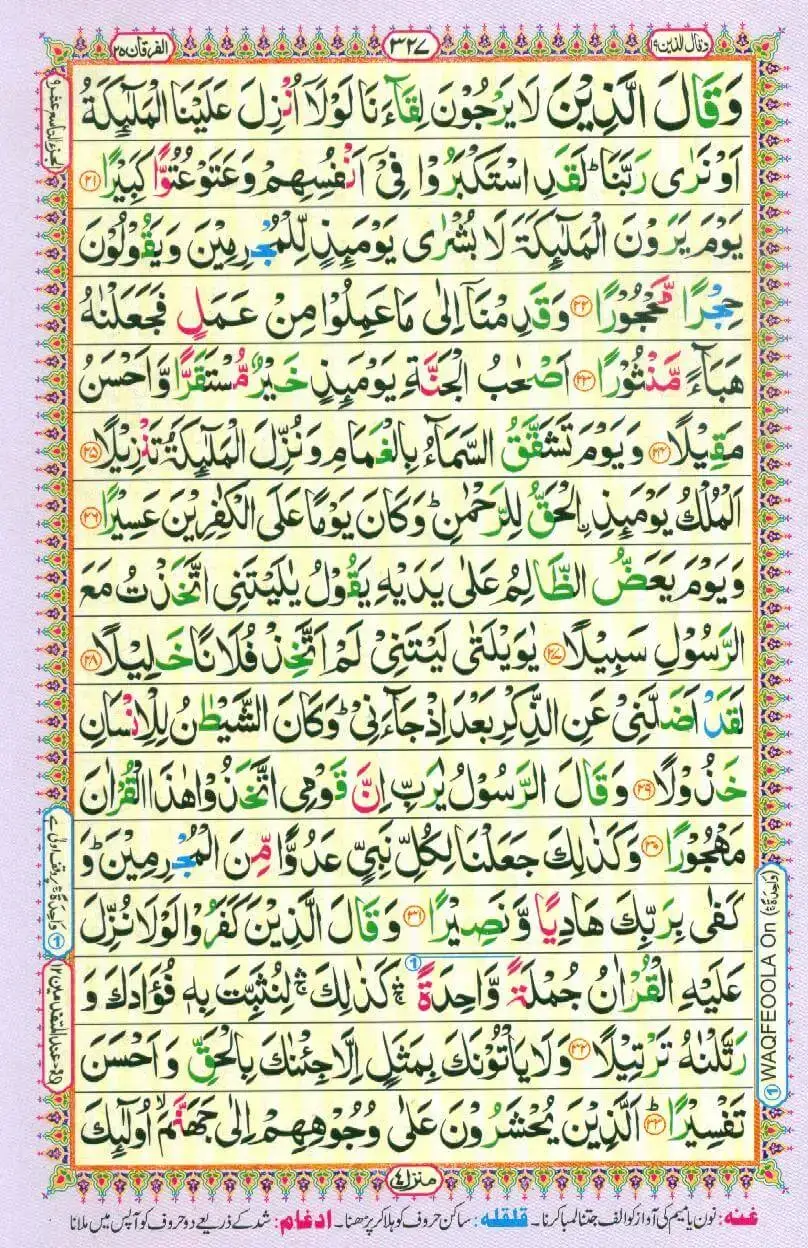 الفرقان ٢٥
٣٢٧
وقال الذین ١٩
وَقَالَ الَّذِيْنَ لَا يَرْجُوْنَ لِقَآءَنَا لَوْلَاۤ اُنْزِلَ عَلَيْنَا الْمَلٰٓئِكَةُ
اَوْ نَرٰى رَبَّنَا ؕ لَقَدِ اسْتَكْبَرُوْا فِيْۤ اَنْفُسِهِمْ وَعَتَوْ عُتُوًّا كَبِيْرًا ۝٢١
يَوْمَ يَرَوْنَ الْمَلٰٓئِكَةَ لَا بُشْرٰى يَوْمَئِذٍ لِّلْمُجْرِمِيْنَ وَيَقُوْلُوْنَ
حِجْرًا مَّحْجُوْرًا ۝٢٢ وَقَدِمْنَاۤ اِلٰى مَا عَمِلُوْا مِنْ عَمَلٍ فَجَعَلْنٰهُ
هَبَآءً مَّنْثُوْرًا ۝٢٣ اَصْحٰبُ الْجَنَّةِ يَوْمَئِذٍ خَيْرٌ مُّسْتَقَرًّا وَّاَحْسَنُ
مَقِيْلًا ۝٢٤ وَيَوْمَ تَشَقَّقُ السَّمَآءُ بِالْغَمَامِ وَنُزِّلَ الْمَلٰٓئِكَةُ تَنْزِيْلًا ۝٢٥
اَلْمُلْكُ يَوْمَئِذِ ۨالْحَقُّ لِلرَّحْمٰنِ ؕ وَكَانَ يَوْمًا عَلَى الْكٰفِرِيْنَ عَسِيْرًا ۝٢٦
وَيَوْمَ يَعَضُّ الظَّالِمُ عَلٰى يَدَيْهِ يَقُوْلُ يٰلَيْتَنِى اتَّخَذْتُ مَعَ
الرَّسُوْلِ سَبِيْلًا ۝٢٧ يٰوَيْلَتٰى لَيْتَنِيْ لَمْ اَتَّخِذْ فُلَانًا خَلِيْلًا ۝٢٨
لَقَدْ اَضَلَّنِيْ عَنِ الذِّكْرِ بَعْدَ اِذْ جَآءَنِيْ ؕ وَكَانَ الشَّيْطٰنُ لِلْاِنْسَانِ
خَذُوْلًا ۝٢٩ وَقَالَ الرَّسُوْلُ يٰرَبِّ اِنَّ قَوْمِى اتَّخَذُوْا هٰذَا الْقُرْاٰنَ
مَهْجُوْرًا ۝٣٠ وَكَذٰلِكَ جَعَلْنَا لِكُلِّ نَبِيٍّ عَدُوًّا مِّنَ الْمُجْرِمِيْنَ ؕ وَ
كَفٰى بِرَبِّكَ هَادِيًا وَّنَصِيْرًا ۝٣١ وَقَالَ الَّذِيْنَ كَفَرُوْا لَوْلَا نُزِّلَ
عَلَيْهِ الْقُرْاٰنُ جُمْلَةً وَّاحِدَةً ۛۚ كَذٰلِكَ ۛۚ لِنُثَبِّتَ بِهٖ فُؤَادَكَ وَ
رَتَّلْنٰهُ تَرْتِيْلًا ۝٣٢ وَلَا يَاْتُوْنَكَ بِمَثَلٍ اِلَّا جِئْنٰكَ بِالْحَقِّ وَاَحْسَنَ
تَفْسِيْرًا ؕ۝٣٣ اَلَّذِيْنَ يُحْشَرُوْنَ عَلٰى وُجُوْهِهِمْ اِلٰى جَهَنَّمَ ۙ اُولٰٓئِكَ
① WAQFEOOLA On (وَاحِدَةً ۛۚ)
منزل ٤
غنه: نون یا میم کی آواز کو الف جتنا لمبا کرنا۔ قلقله: ساکن حروف کو ہلا کر پڑھنا۔ ادغام: شد کے ذریعے دو حروف کو آپس میں ملانا